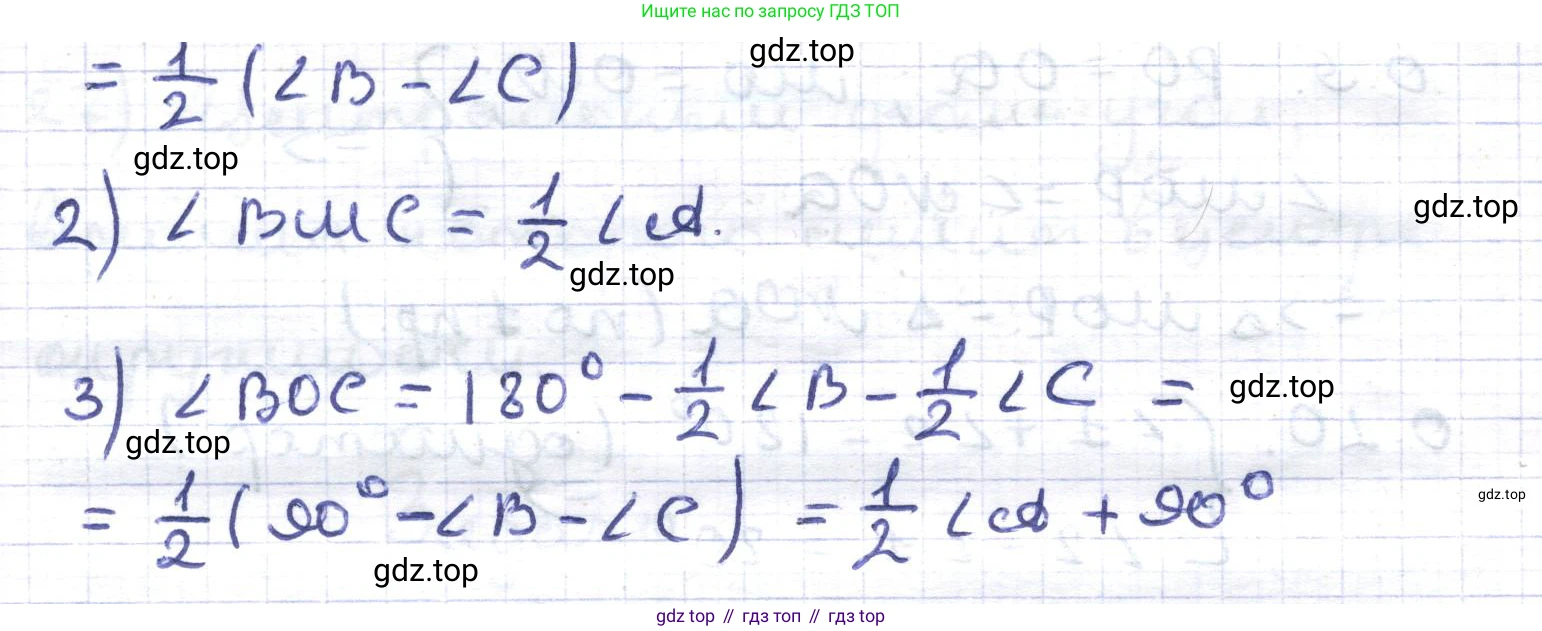 Ищите нас по запросу ГДЗ ТОП
gdz.top
= 1/2 (∠B - ∠C)
gdz.top
2) ∠BMC = 1/2 ∠A.
gdz.top
gdz.top
3) ∠BOC = 180° - 1/2 ∠B - 1/2 ∠C =
gdz.top
gdz.top
= 1/2 (90° - ∠B - ∠C) = 1/2 ∠A + 90°
gdz.top
gdz.top
gdz top // гдз топ // gdz top